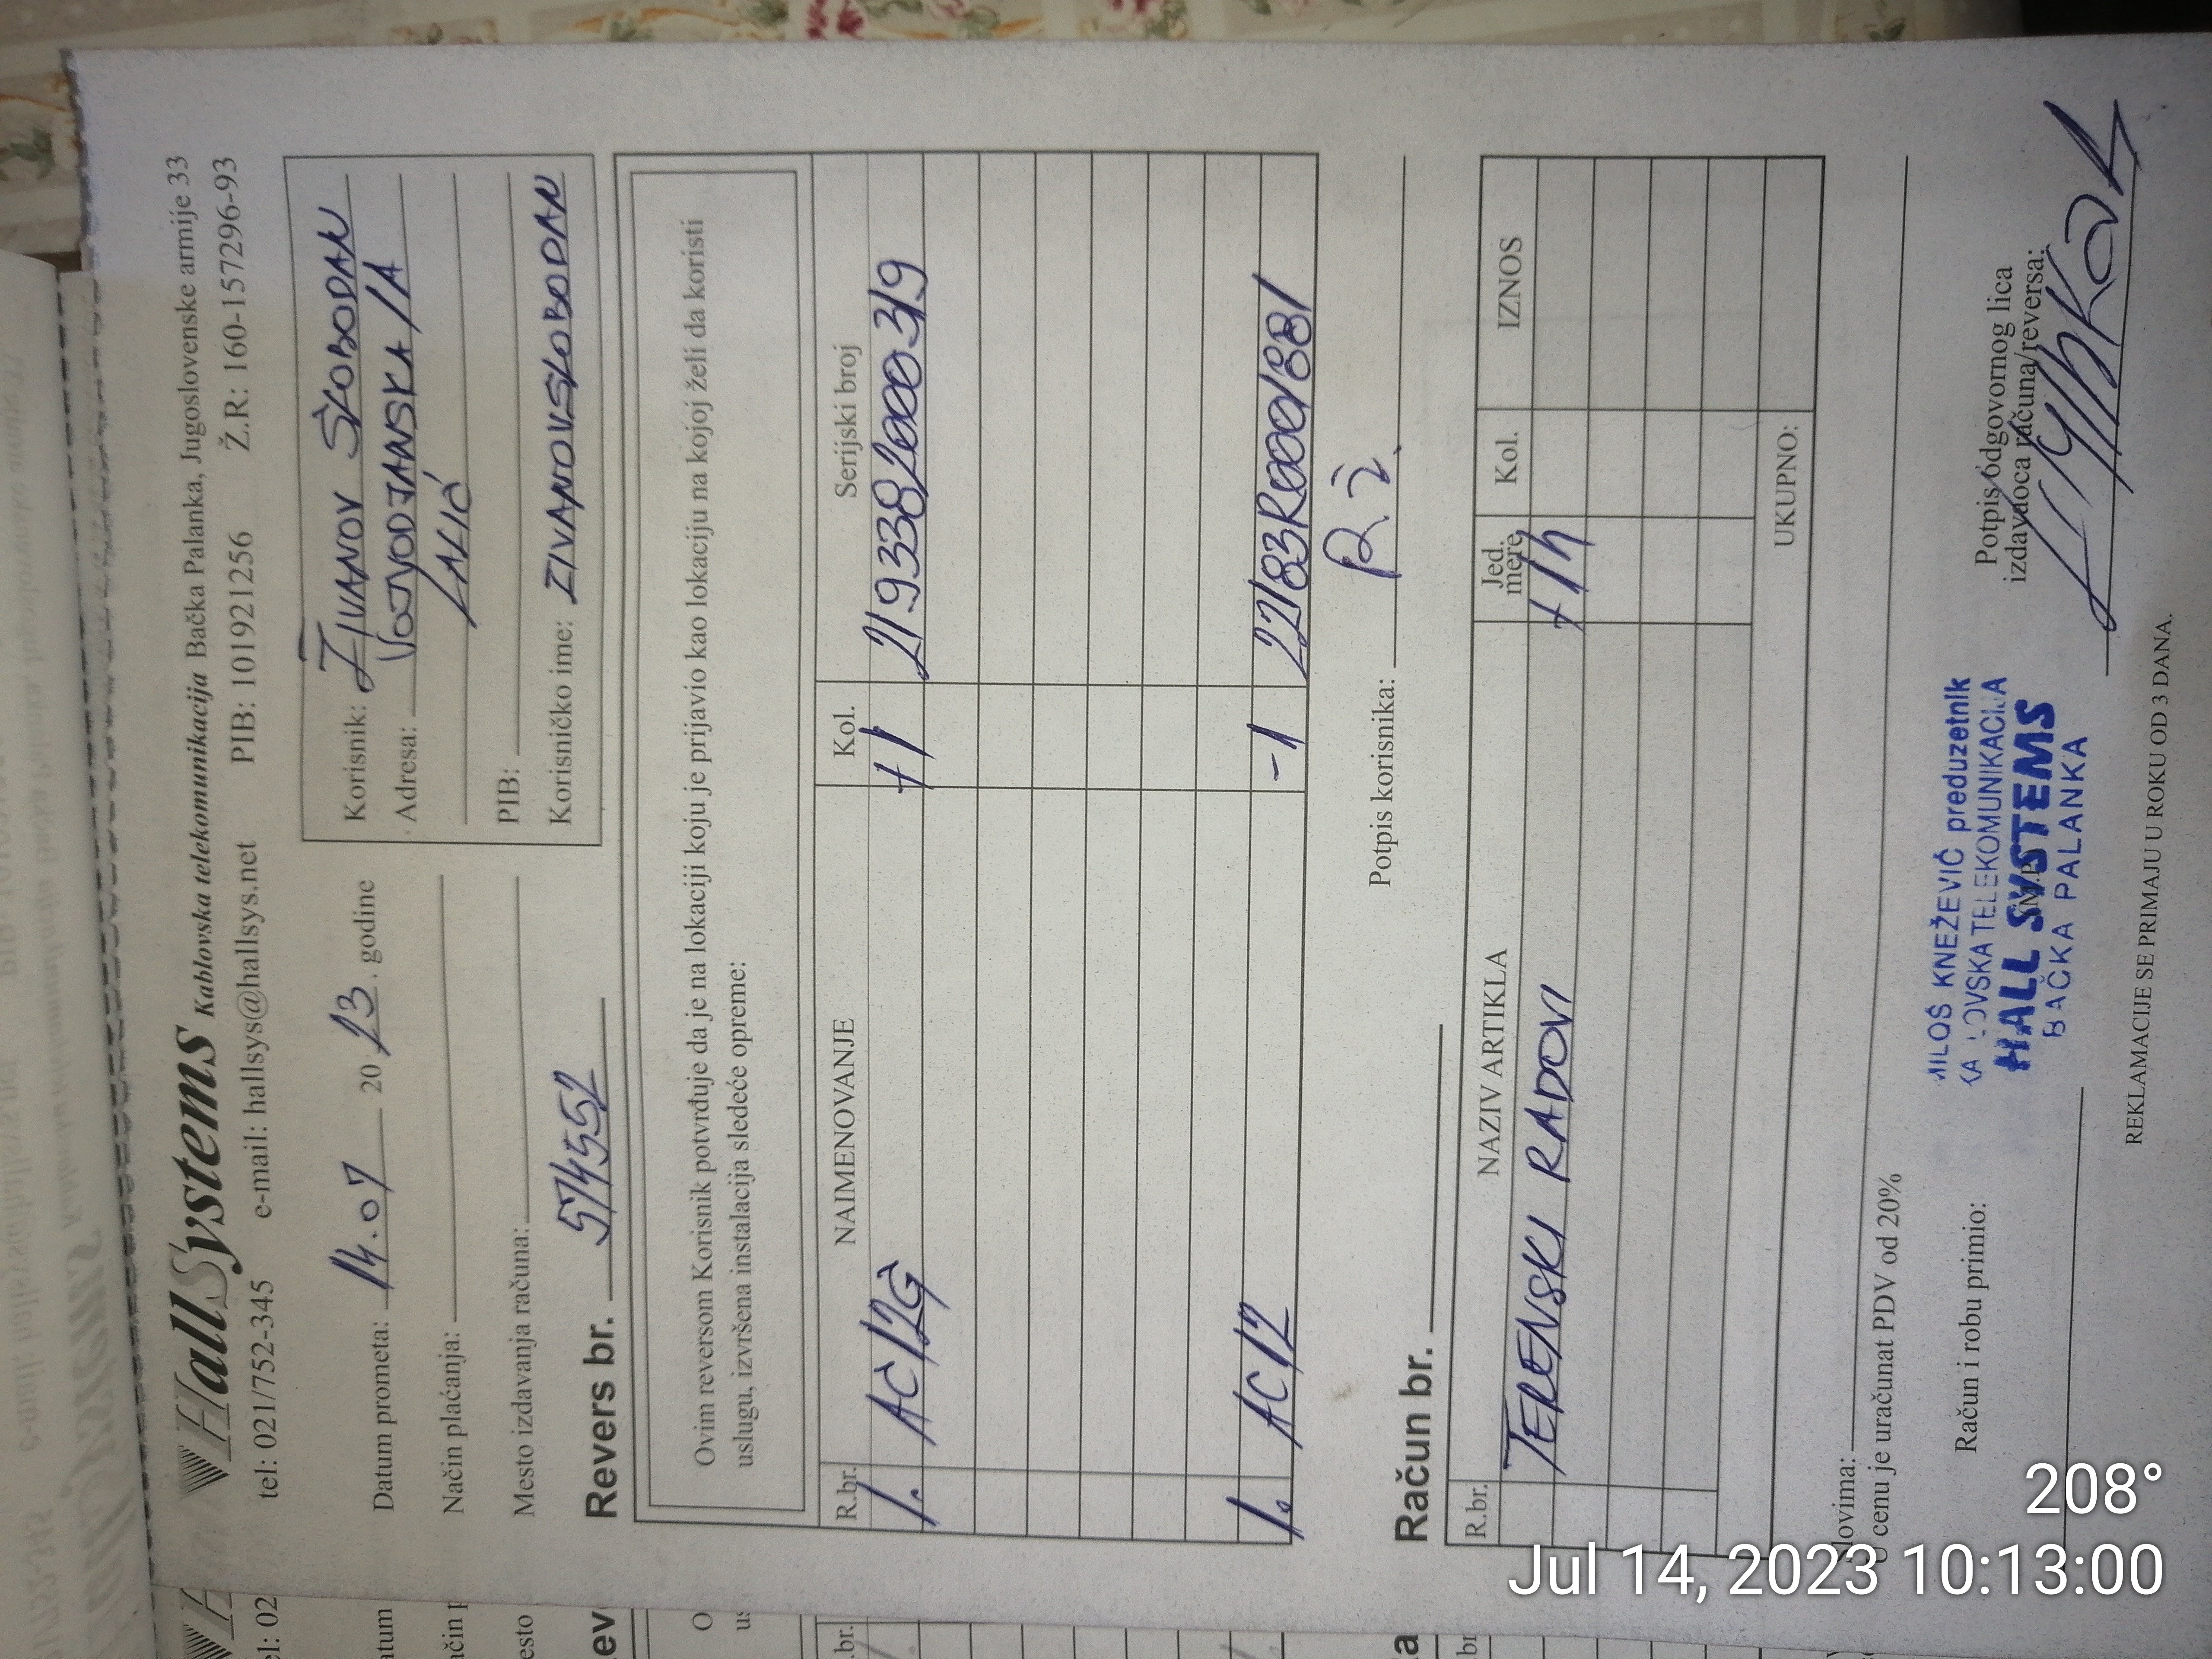 HallSystems Kablovska telekomunikacija Bačka Palanka, Jugoslovenske armije 33
tel: 021/752-345 e-mail: hallsys@hallsys.net PIB: 101921256 Ž.R: 160-157296-93
Datum prometa: 14.07 2023. godine
Način plaćanja:
Mesto izdavanja računa:
Korisnik: ŽIVANOV SLOBODAN
Adresa: VOJVODJANSKA 1A
LALIĆ
PIB:
Korisničko ime: ZIVANOVSLOBODAN
Revers br. 574552
Ovim reversom Korisnik potvrđuje da je na lokaciji koju je prijavio kao lokaciju na kojoj želi da koristi
uslugu, izvršena instalacija sledeće opreme:
R.br. NAIMENOVANJE Kol. Serijski broj
1. AC12G +1 2193382000319
1. AC12 -1 22183R0001881
Potpis korisnika: R.Ž.
Račun br.
R.br. NAZIV ARTIKLA Jed. mere Kol. IZNOS
TERENSKI RADOVI +1h
UKUPNO:
Slovima:
U cenu je uračunat PDV od 20%
Račun i robu primio:
MILOŠ KNEŽEVIĆ preduzetnik
KABLOVSKA TELEKOMUNIKACIJA
HALL SYSTEMS
BAČKA PALANKA
M.P.
Potpis odgovornog lica
izdavaoca računa/reversa:
REKLAMACIJE SE PRIMAJU U ROKU OD 3 DANA.
208°
Jul 14, 2023 10:13:00